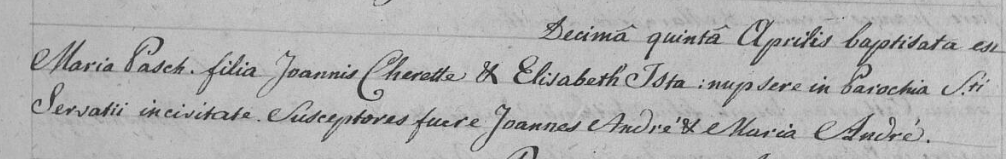 Decimâ quintâ Aprilis baptisata est
Maria Pasch. filia Joannis Cherette & Elisabeth Ista : nupsere in Parochia S.ti
Servatii incivitate. Susceptores fuere Joannes André & Maria André.